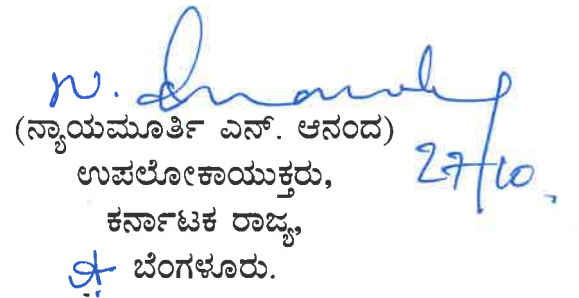 N. Anand
(ನ್ಯಾಯಮೂರ್ತಿ ಎನ್. ಆನಂದ)
27/10.
ಉಪಲೋಕಾಯುಕ್ತರು,
ಕರ್ನಾಟಕ ರಾಜ್ಯ,
ಬೆಂಗಳೂರು.